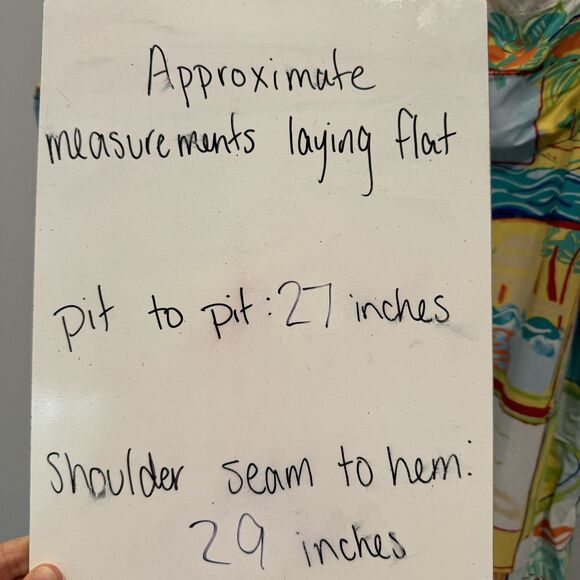 Approximate
measurements laying flat
pit to pit: 27 inches
Shoulder seam to hem:
29 inches